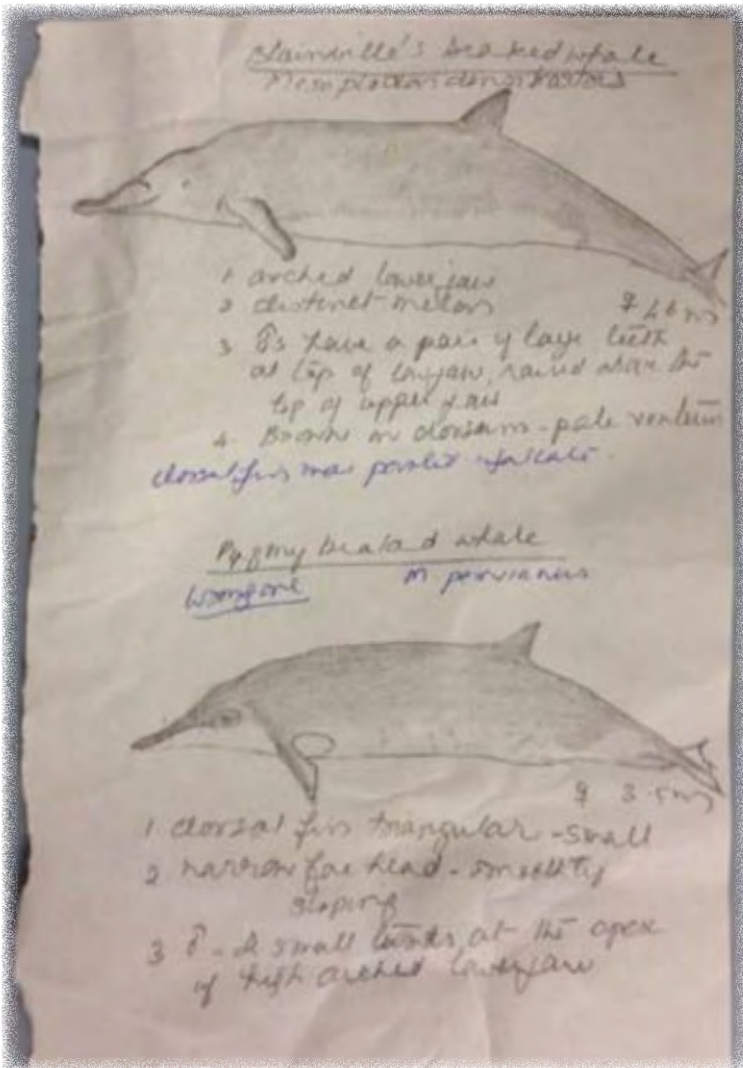 Blainville's beaked whale
Mesoplodon densirostris
1 arched lower jaw
2 distinct melon
♀ 4.6 ms
3 ♂s have a pair of large teeth
at top of lowjaw, raised above the
top of upper jaw
4. Brown on dorsum - pale ventrum
dorsal fin more pointed - falcate.
Pygmy beaked whale
M peruvianus
♀ 3.5 ms
1 dorsal fin triangular - small
2 narrow fore head - smoothly
sloping
3 ♂ - 2 small at the apex
of high arched lowerjaw